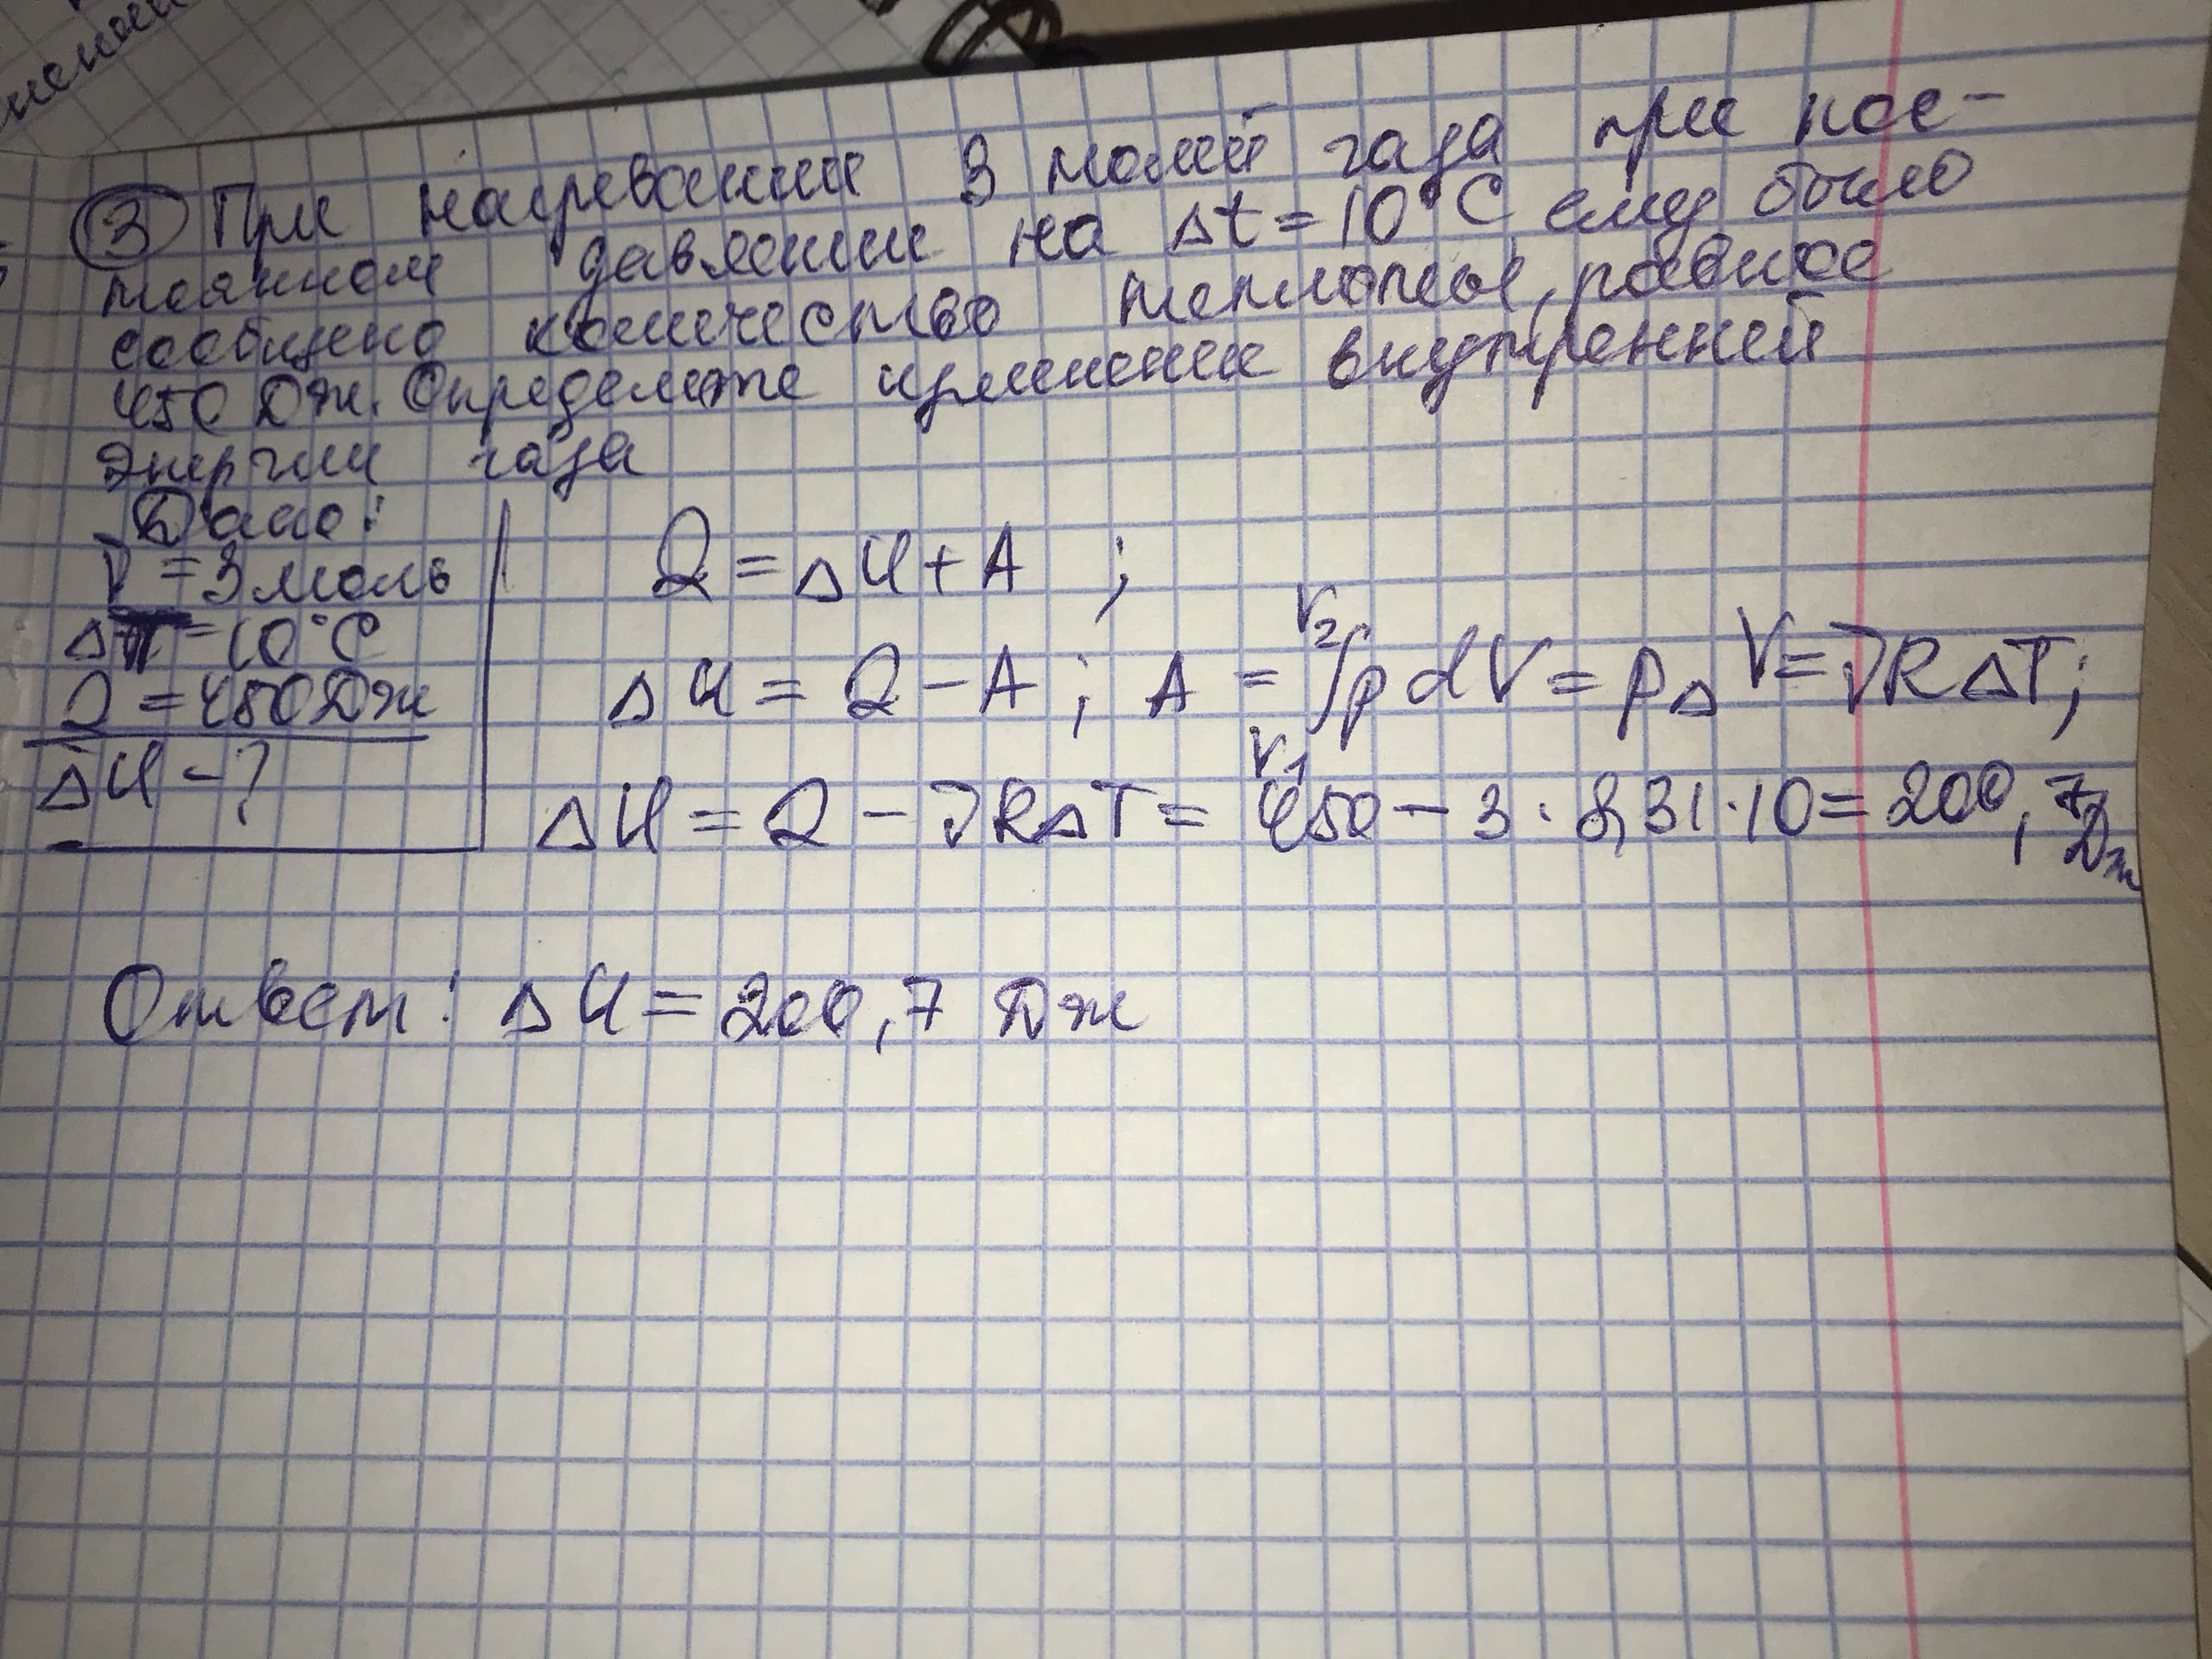 нении
③ При нагревании 3 молей газа при пос-
тоянном давлении на Δt = 10°C ему было
сообщено количество теплоты, равное
450 Дж. Определите изменение внутренней
энергии газа
Дано:
ν = 3 моль
ΔT = 10°C
Q = 450 Дж
ΔU - ?
Q = ΔU + A ;
ΔU = Q - A ; A = ∫ p dV = pΔV = νRΔT;
V₂
V₁
ΔU = Q - νRΔT = 450 - 3 · 8,31 · 10 = 200,7 Дж
Ответ: ΔU = 200,7 Дж